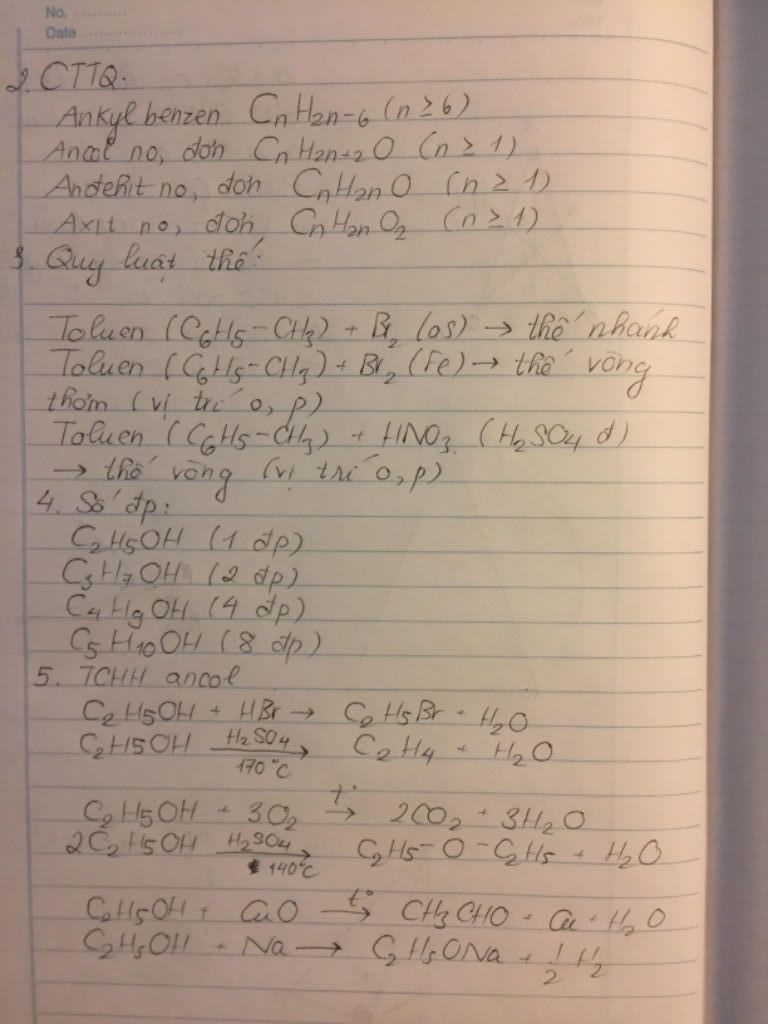 No. ...........
Date .....................
2. CTTQ:
Ankyl benzen CnH2n-6 (n ≥ 6)
Ancol no, đơn CnH2n+2O (n ≥ 1)
Anđehit no, đơn CnH2nO (n ≥ 1)
Axit no, đơn CnH2nO2 (n ≥ 1)
3. Quy luật thế:
Toluen (C6H5-CH3) + Br2 (as) → thế nhánh
Toluen (C6H5-CH3) + Br2 (Fe) → thế vòng
thơm (vị trí o, p)
Toluen (C6H5-CH3) + HNO3 (H2SO4 đ)
→ thế vòng (vị trí o, p)
4. Số đp:
C2H5OH (1 đp)
C3H7OH (2 đp)
C4H9OH (4 đp)
C5H10OH (8 đp)
5. TCHH ancol
C2H5OH + HBr → C2H5Br + H2O
C2H5OH H2SO4 → 170°C C2H4 + H2O
C2H5OH + 3O2 t° → 2CO2 + 3H2O
2C2H5OH H2SO4 → 140°C C2H5-O-C2H5 + H2O
C2H5OH + CuO t° → CH3CHO + Cu + H2O
C2H5OH + Na → C2H5ONa + 1/2 H2